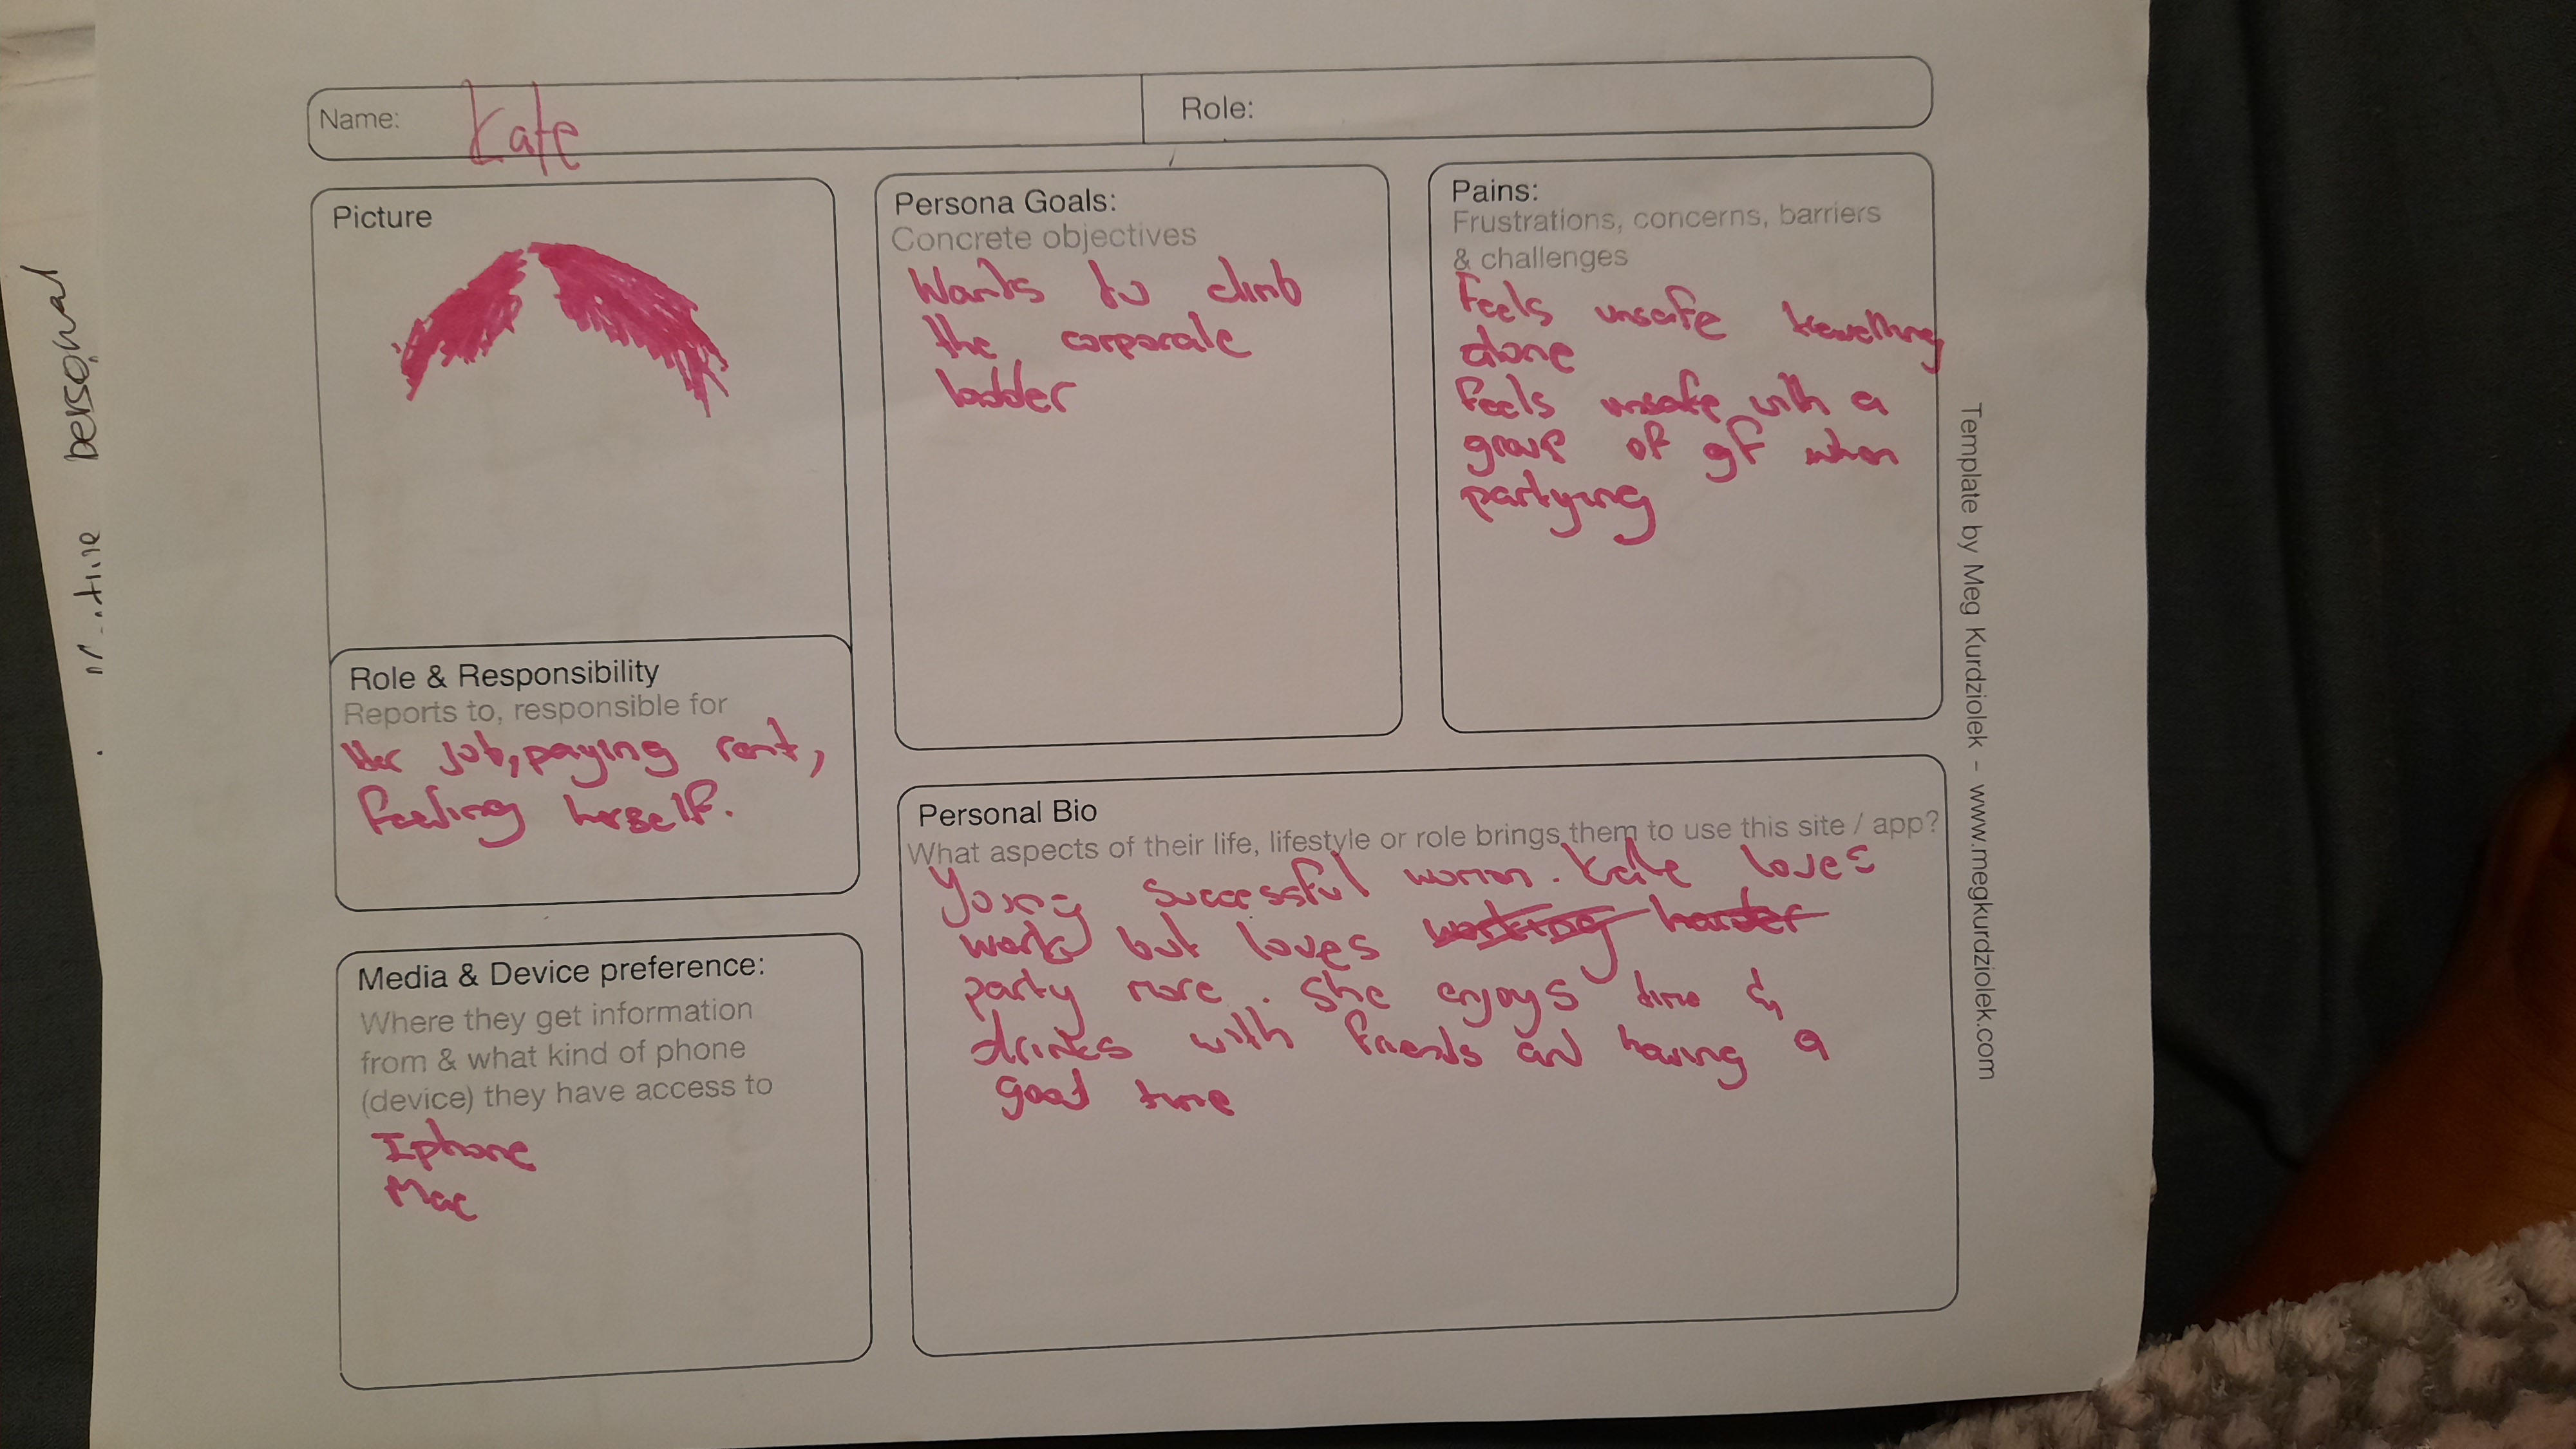 personal
Name: Kate
Role:
Picture
Role & Responsibility
Reports to, responsible for
Her job, paying rent,
Feeling herself.
Media & Device preference:
Where they get information
from & what kind of phone
(device) they have access to
Iphone
Mac
Persona Goals:
Concrete objectives
Wants to climb
the corporate
ladder
Pains:
Frustrations, concerns, barriers
& challenges
Feels unsafe travelling
alone
Feels unsafe with a
group of gf when
partying
Personal Bio
What aspects of their life, lifestyle or role brings them to use this site / app?
young successful woman. Kate loves
work but loves
party more. She enjoys time in
drinks with friends and having a
good time
Template by Meg Kurdziolek - www.megkurdziolek.com